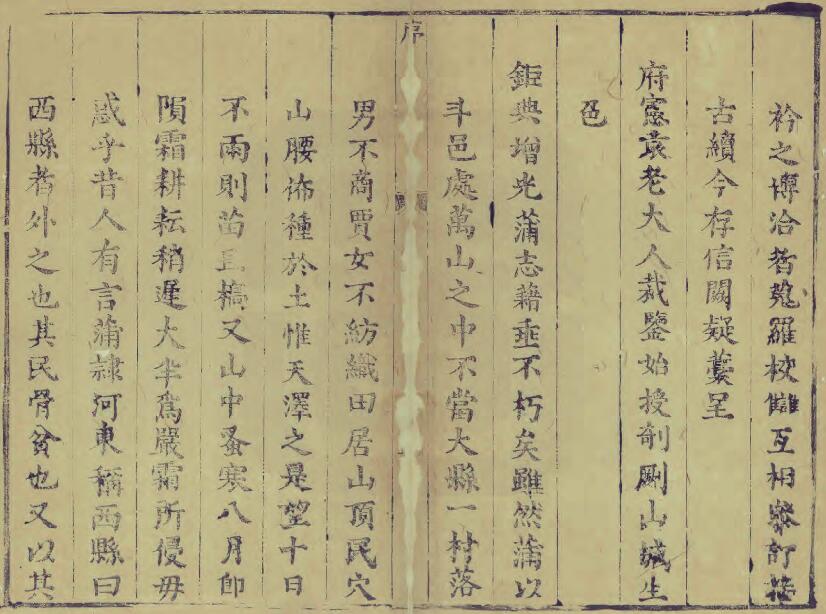 衿之博洽者蒐羅校讎互相叅訂
古續今存信闕疑藁呈
府憲袁老大人裁鑒始授剞劂山城生
色
鉅典增光蒲志藉垂不朽矣雖然蒲以
斗邑處萬山之中不當大縣一村落
序
男不商賈女不紡織田居山頂民穴
山腰佈種於土惟天澤之是望十日
不雨則苗立槁又山中蚤寒八月即
隕霜耕耘稍遲大半為嚴霜所侵毋
惑乎昔人有言蒲隷河東稱西縣曰
西縣者外之也其民骨貧也又以其